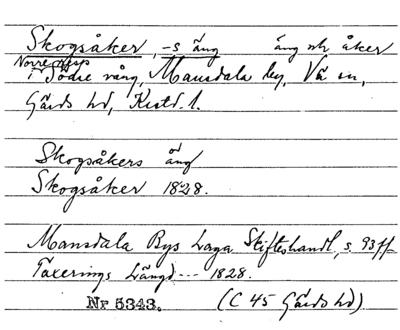 Skogsåker, -s äng   äng och åker
Norre resp
i Södre vång, Mansdala by, Vä sn,
Gärds hd, Kristd. l.
Skogsåkers äng
Skogsåker 1828.
Mansdala Bys Laga Skifteshandl., s. 93 ff
Taxerings Längd --- 1828.
Nr 5343.   (C 45 Gärds hd)